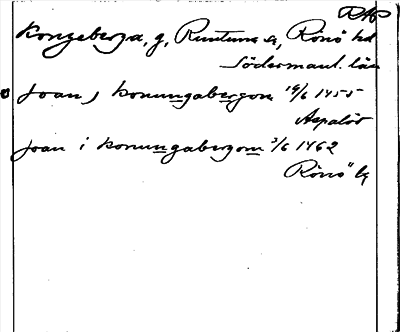 RAP
Kongeberga, g, Runtuna sn, Rönö hd
Södermanl. län
Joan j konungabergom 14/6 1455
Aspalöt
Joan i konungabergom 3/6 1462
Rönö